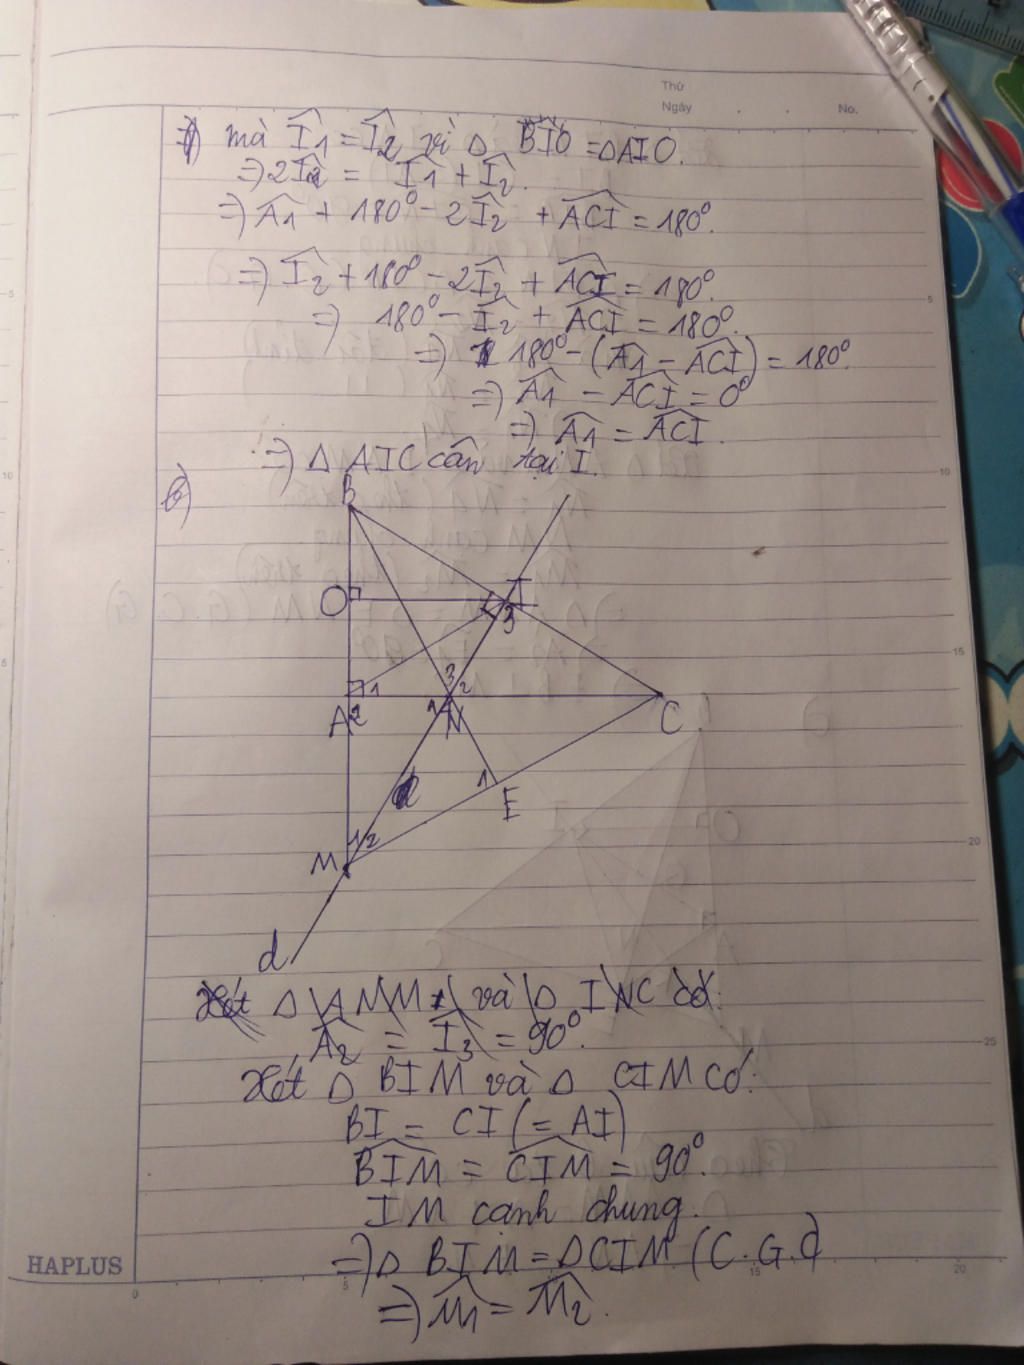 Thứ
Ngày . . No.
mà Î1 = Î2 vì Δ BIO = ΔAIO.
=> 2Î2 = Î1 + Î2.
=> Â1 + 180° - 2Î2 + ACI = 180°.
=> Î2 + 180° - 2Î2 + ACI = 180°.
=> 180° - Î2 + ACI = 180°.
=> 180° - (Â1 - ACI) = 180°
=> Â1 - ACI = 0°
=> Â1 = ACI.
=> Δ AIC cân tại I.
B
O I
3
3
1 2
A 2 1 N C
1 E
1 2
M
d
Xét Δ ANM và Δ INC có:
Â2 = Î3 = 90°.
Xét Δ BIM và Δ CIM có:
BI = CI (= AI)
BIM = CIM = 90°.
IM cạnh chung.
=> Δ BIM = ΔCIM (C.G.C)
=> M̂1 = M̂2.
HAPLUS
0 5 15 20
5 10 15 20 25